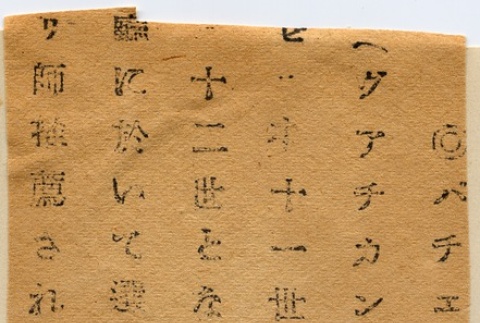 ◎バチェ
ヘグアチカン
ピ:オ十一世
十二世とな
廳に於いて選
り師推薦され